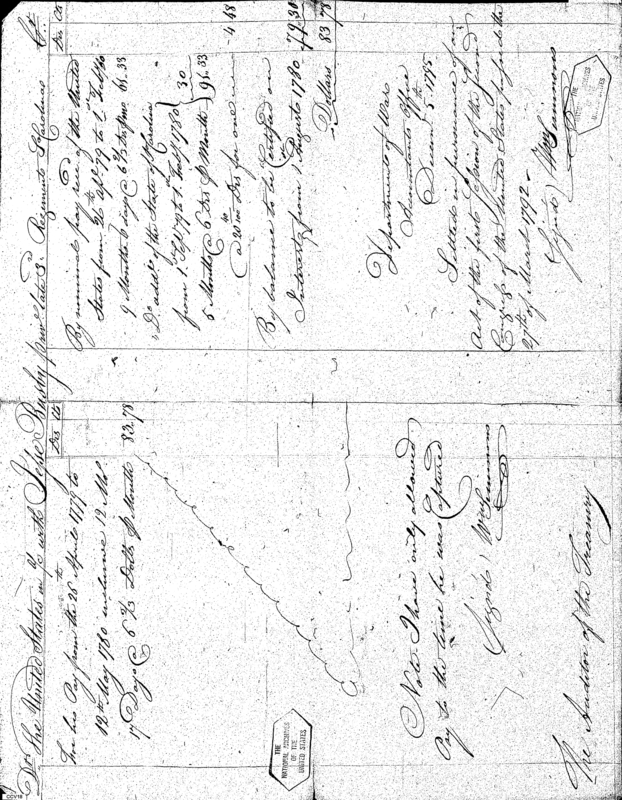 Drs The United States in a/c with Jesse Bushy late 3d Regiment N Carolina Crs
Drs Cts
For his Pay from the 26th April 1779 to
12th May 1780 inclusive 12 Mos
17 Days @ 6 2/3 Dolls P Month 83.78
Note I have only allowed
Pay to the time he was Captured
Signed Wm Simmons
The Auditor of the Treasury
Drs Cts
By nominal pay rec'd of the United
States from 26th April 79 to 1 Feby 80
9 Months 6 days @ 6 2/3 drs pmo 61.33
Do addl of the State of N Carolina
from 1 Sept 79 to 1 Feby 1780 30
5 Months @ 6 Drs P Month 91.33
Drs for one is 4.48
By balance to be Certified on
Interest from 1 August 1780 79.30
Dollars 83.78
Department of War
Accountants Office
Decem 5th 1795
Settled in pursuance of an
Act of the first Session of the Second
Congress of the United States passed the
27th of March 1792
Signed Wm Simmons
THE
NATIONAL ARCHIVES
OF THE
UNITED STATES
THE
NATIONAL ARCHIVES
OF THE
UNITED STATES